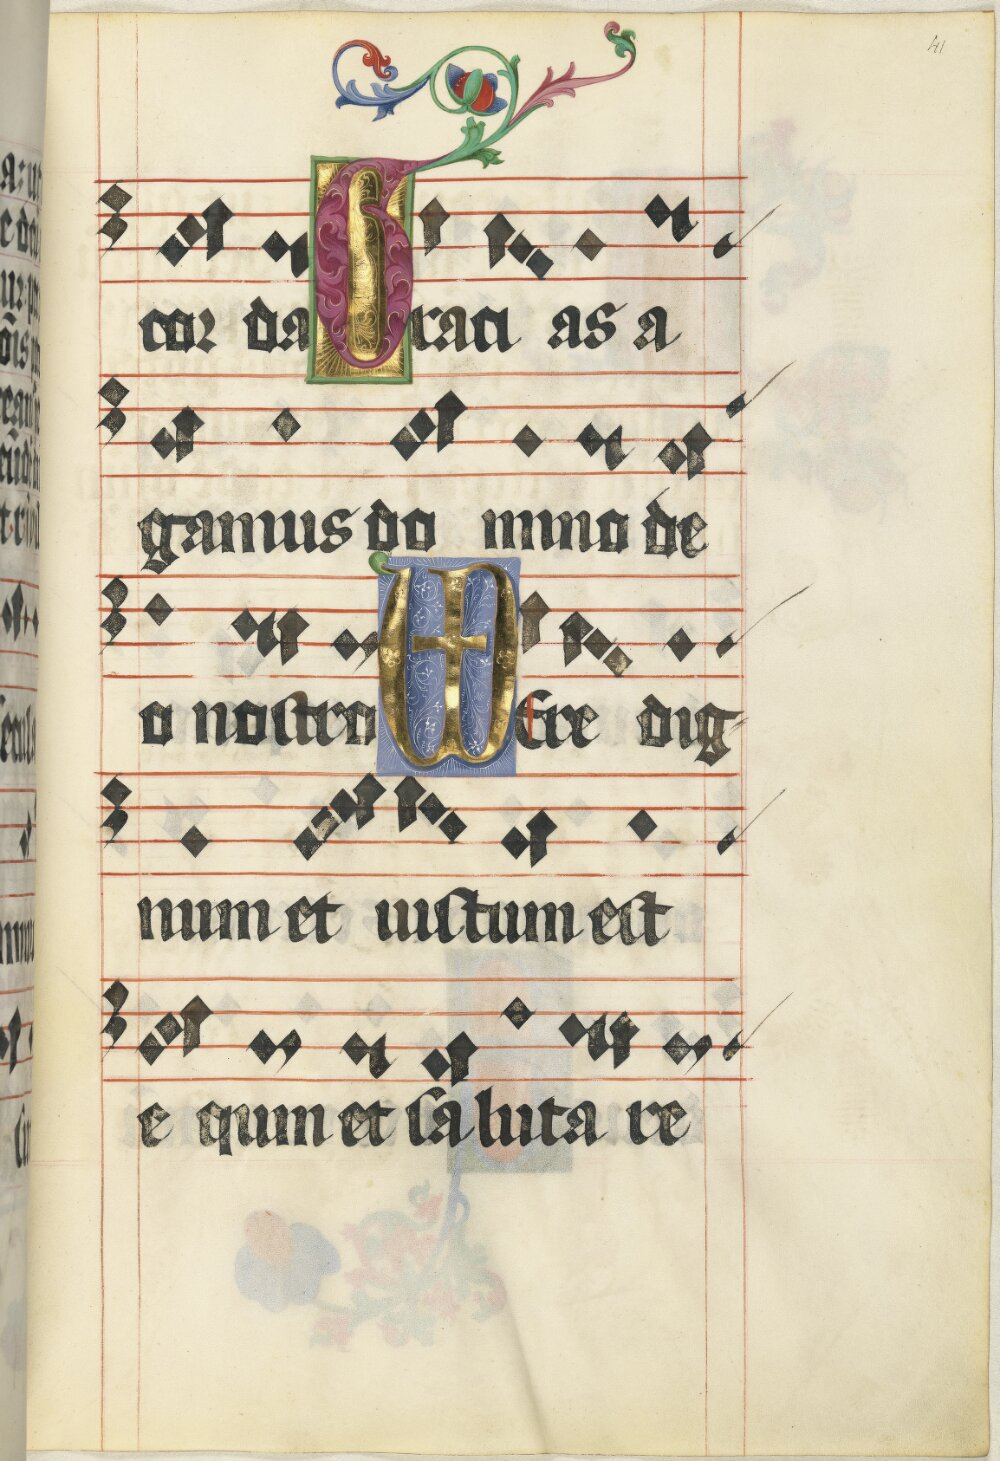 41
cor da Graci as a
gamus do mino de
o nostro Vere dig
num et iustum est
e quum et sa luta re